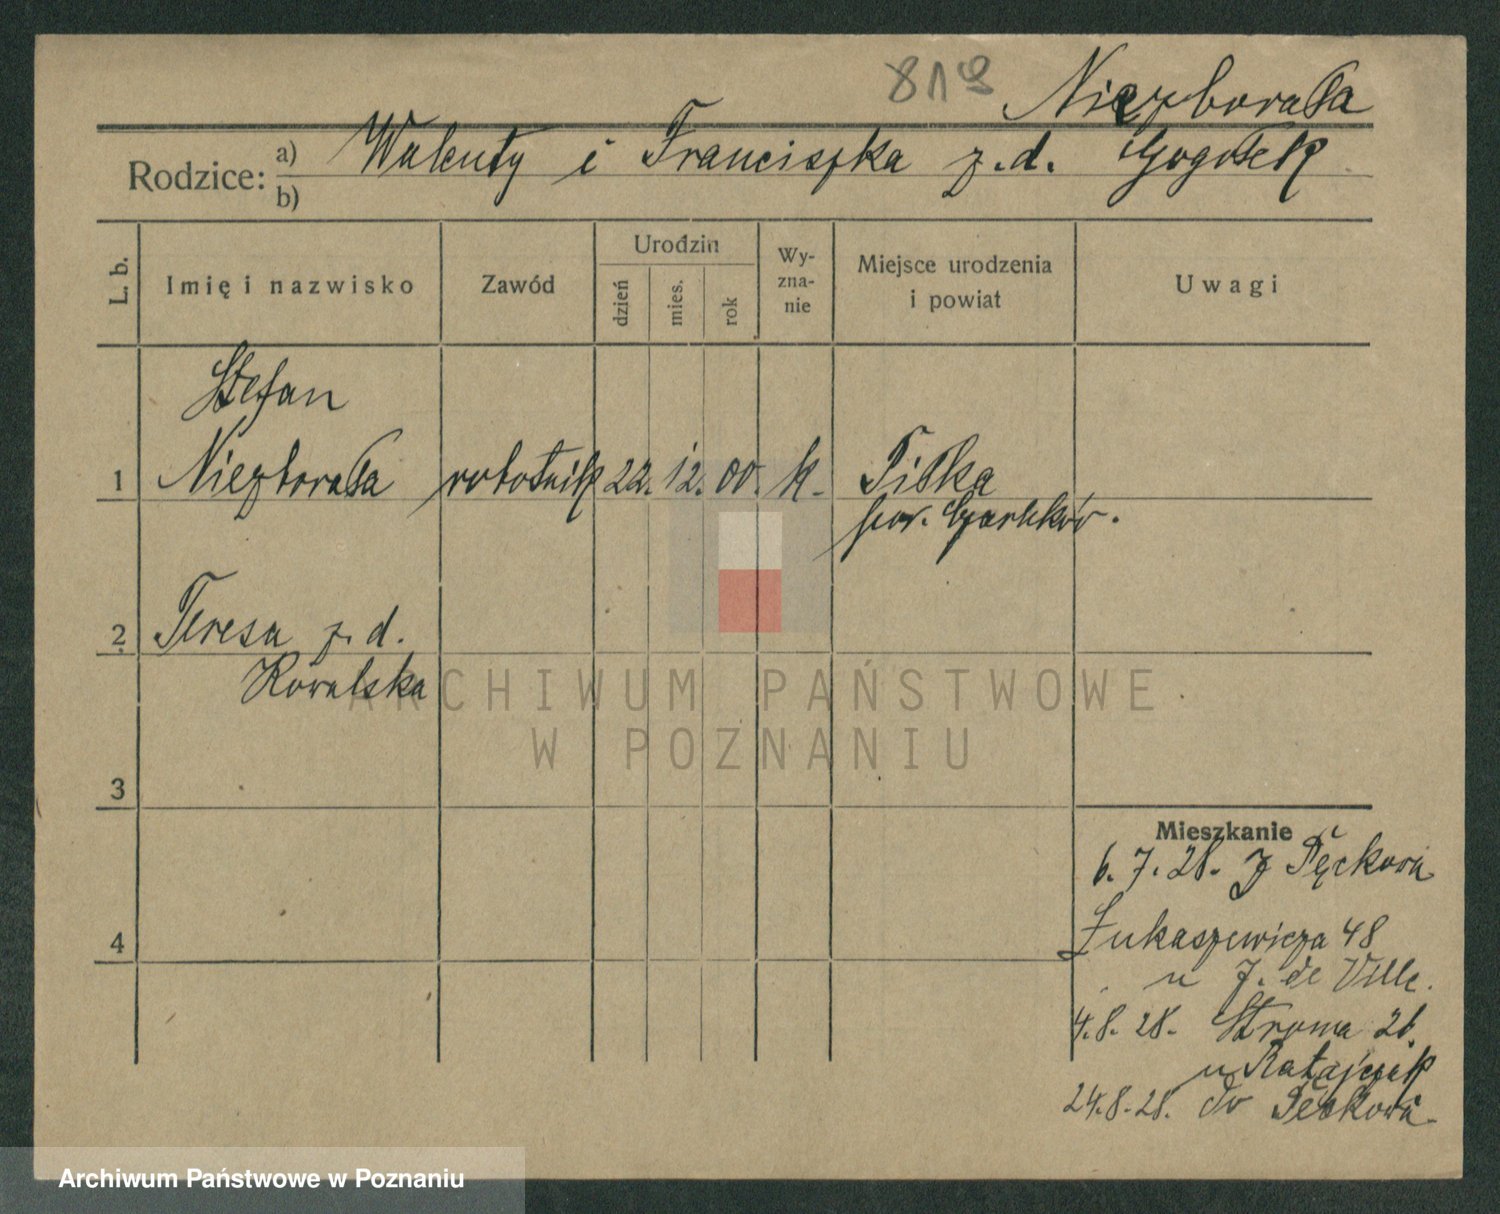 819 Niezborała
Rodzice: a) Walenty i Franciszka z. d. Gogołek
b)
L. b.
Imię i nazwisko
Zawód
Urodzin
dzień
mies.
rok
Wy-
zna-
nie
Miejsce urodzenia
i powiat
Uwagi
Stefan
1 Niezborała robotnik 22. 12. 00. k. Piłka
pow. Czarnków.
2 Teresa z. d.
Kowalska
3
4
Mieszkanie
6. 7. 28. z Pęckowa
Łukaszewicza 48
u J. de Ville.
4. 8. 28. Stroma 26.
u Ratajczak
24. 8. 28. do Pęckowa.
ARCHIWUM PAŃSTWOWE
W POZNANIU
Archiwum Państwowe w Poznaniu